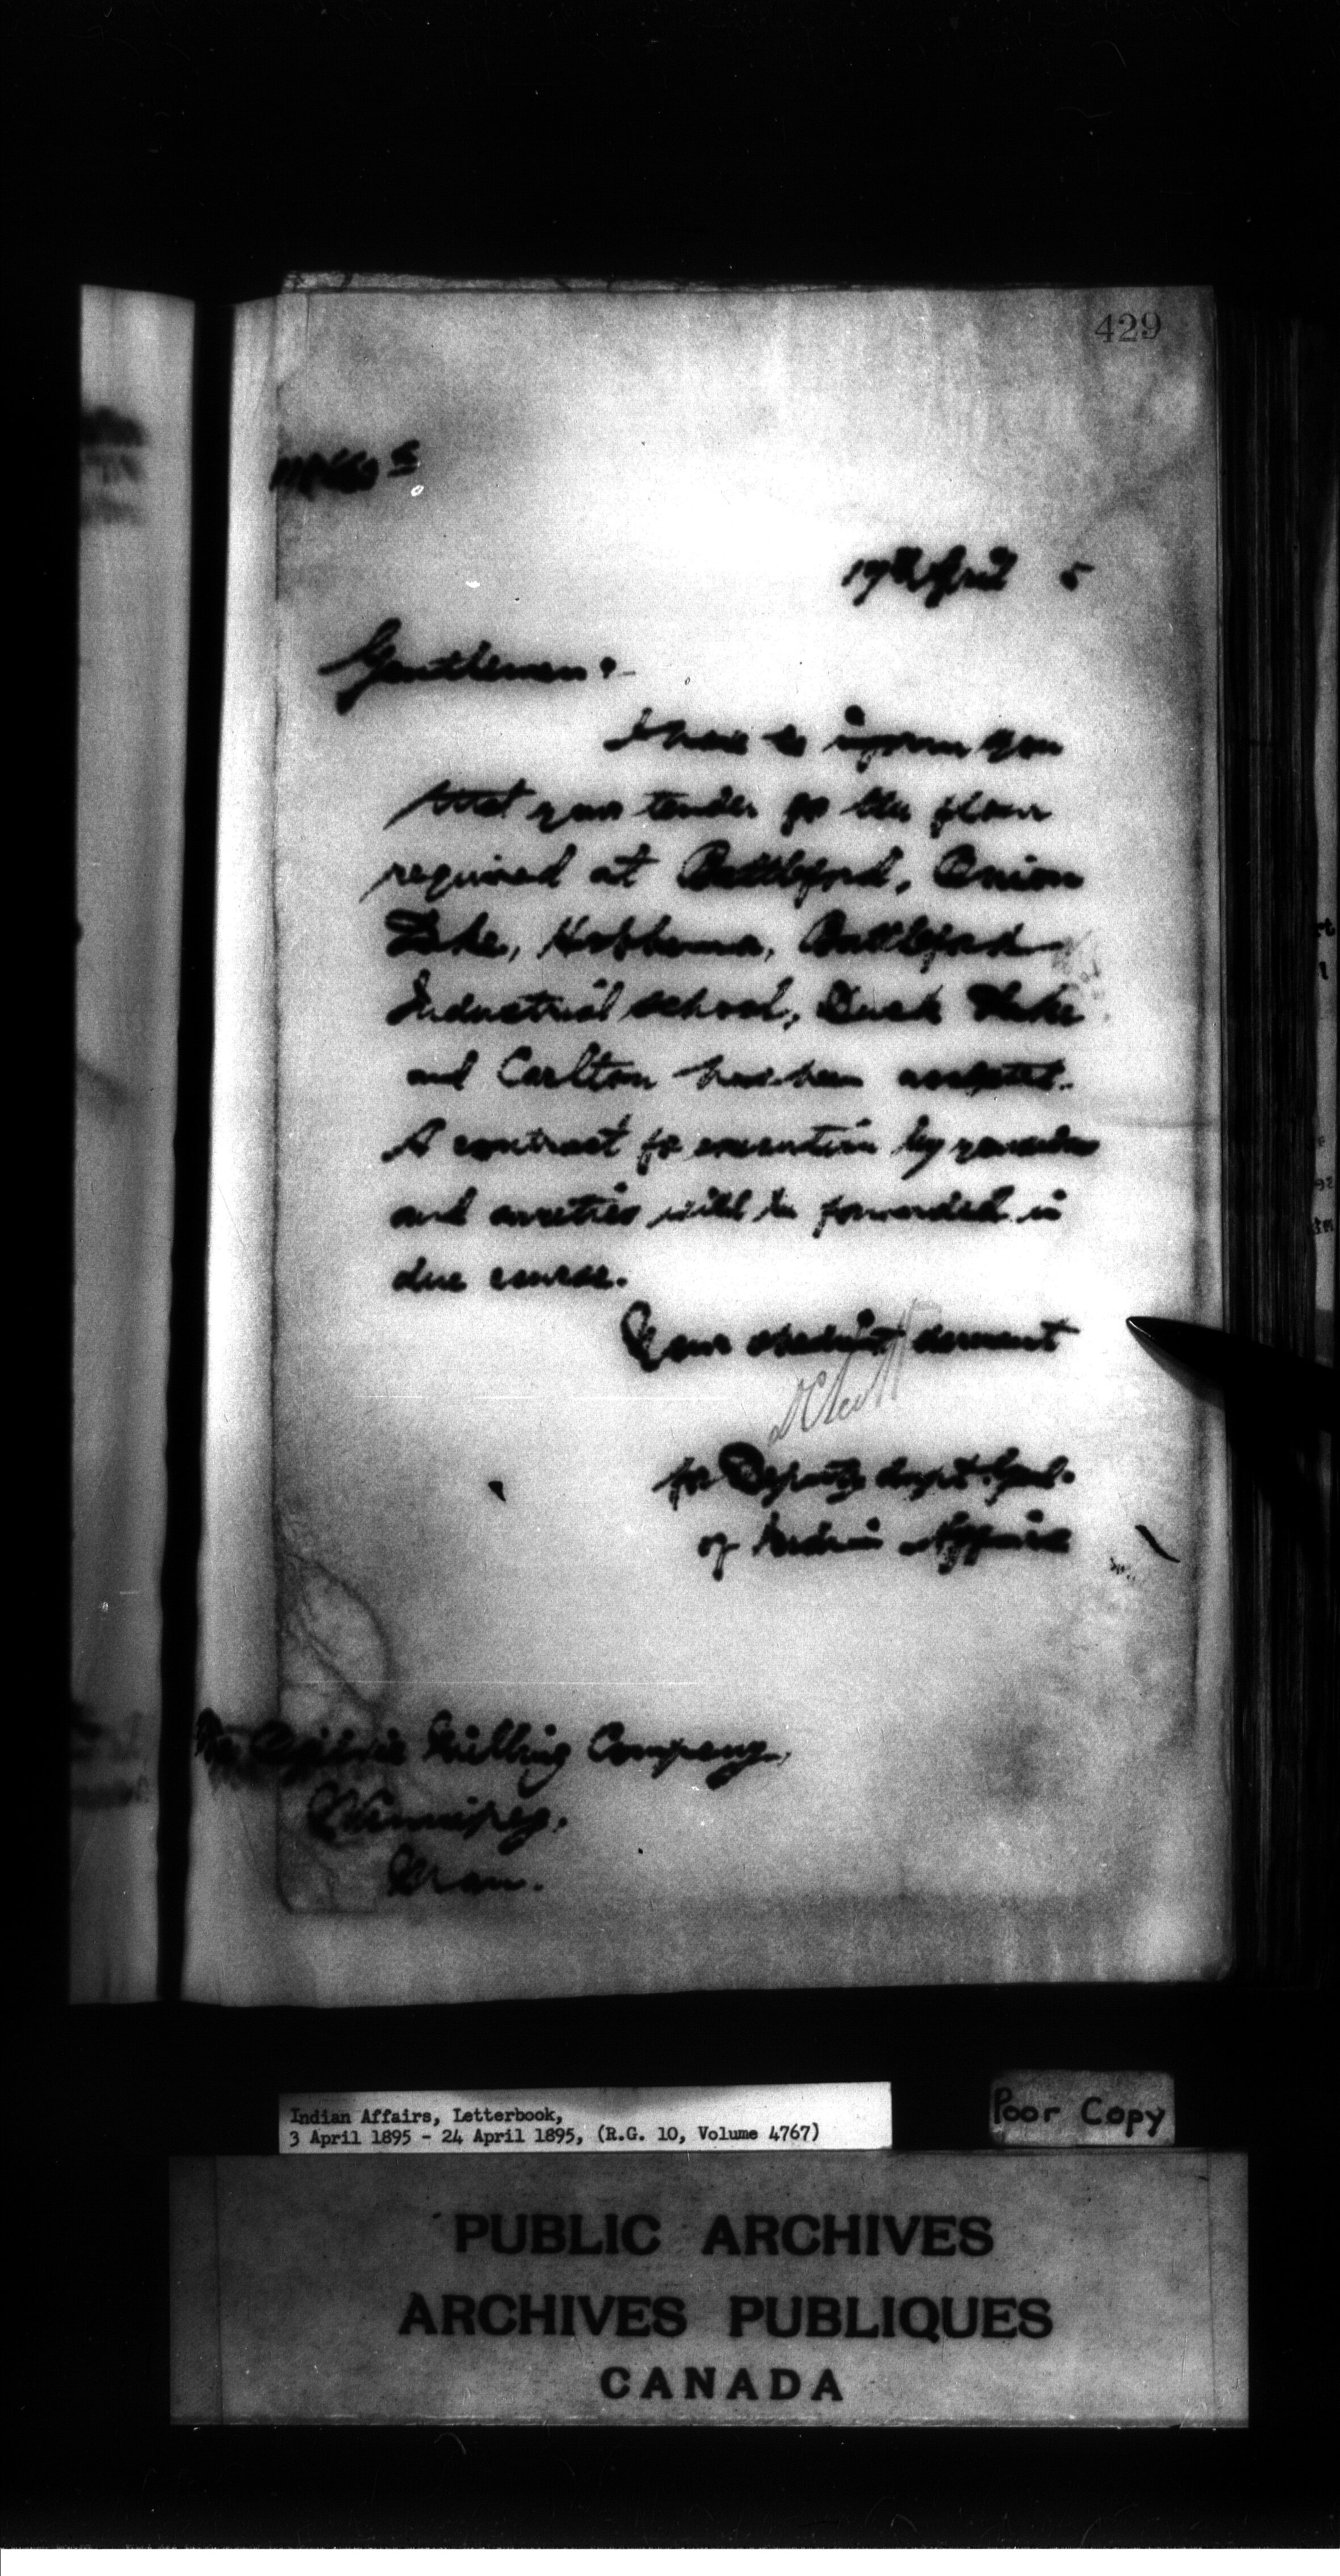 429
19th April 5
Gentlemen:-
I have to inform you
that your tender for the flour
required at Battleford, Onion
Lake, Hobbema, Battleford
Industrial School, Duck Lake
and Carlton has been accepted.
A contract for execution by yourselves
and sureties will be forwarded in
due course.
Your obedient servant
D C Scott
for Deputy Supt. Genl.
of Indian Affairs
The Ogilvie Milling Company,
Winnipeg.
Man.
Indian Affairs, Letterbook,
3 April 1895 - 24 April 1895, (R.G. 10, Volume 4767)
Poor Copy
PUBLIC ARCHIVES
ARCHIVES PUBLIQUES
CANADA